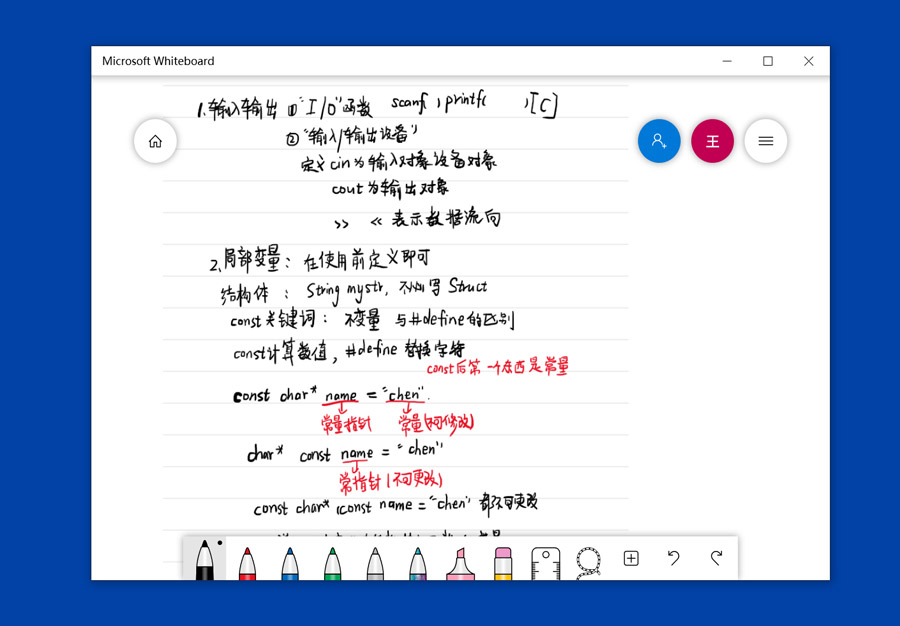 Microsoft Whiteboard
1.输入输出 ①"I/O"函数 scanf, printf( ,)[C]
②"输入/输出设备"
王
定义cin为输入对象设备对象
cout为输出对象
>> << 表示数据流向
2.局部变量：在使用前定义即可
结构体：String mystr, 写Struct
const关键词：不变量 与#define的区别
const计算数值，#define 替换字符
const后第一个东西是常量
const char* name = "chen".
常量指针 常量(不可修改)
char* const name = "chen"
常指针(不可更改)
const char* (const name = "chen" 都不可更改